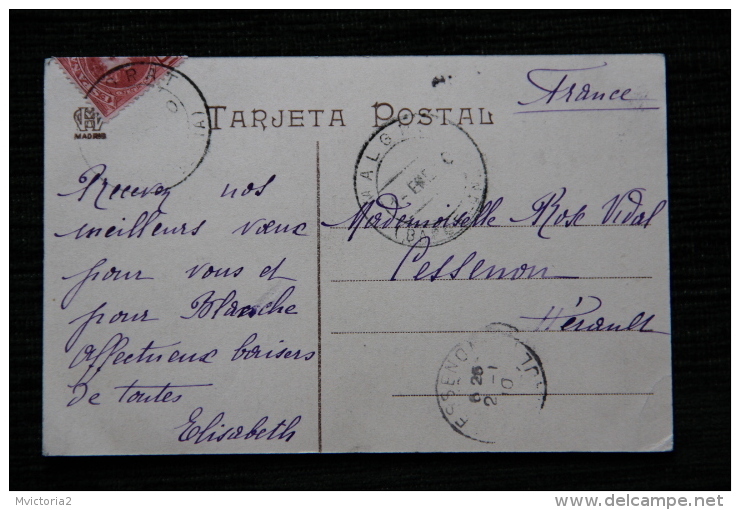 MADRID
TARJETA POSTAL
France
Recevez nos
meilleurs vœux
pour vous et
pour Blanche
affectueux baisers
de toutes
Elisabeth
Mademoiselle Rose Vidal
Cessenon
Hérault
ESSENO
6 25
2-1
10
Mvictoria2
www.delcampe.net